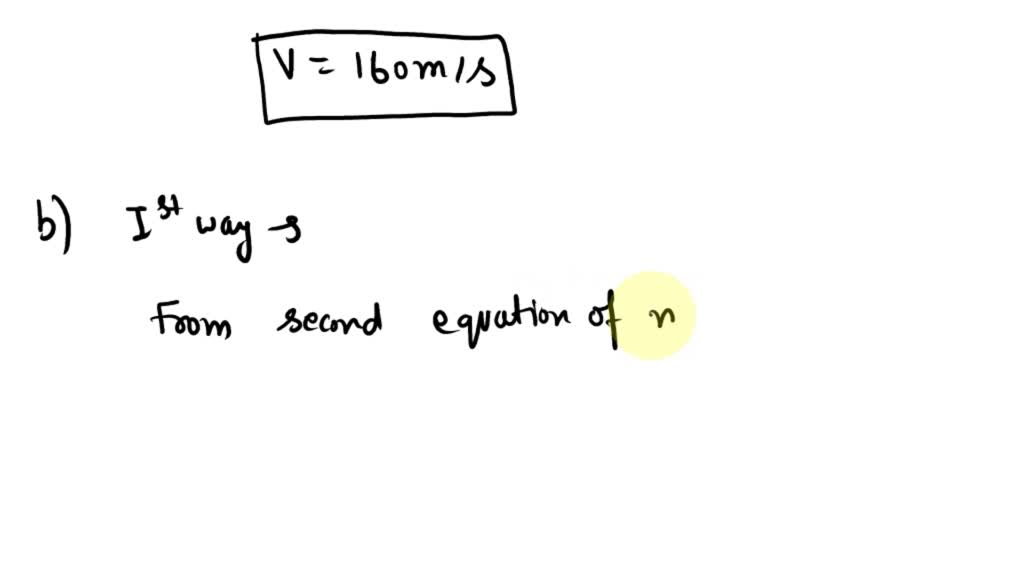 V = 160m/s
b) Ist way →
From second equation of n